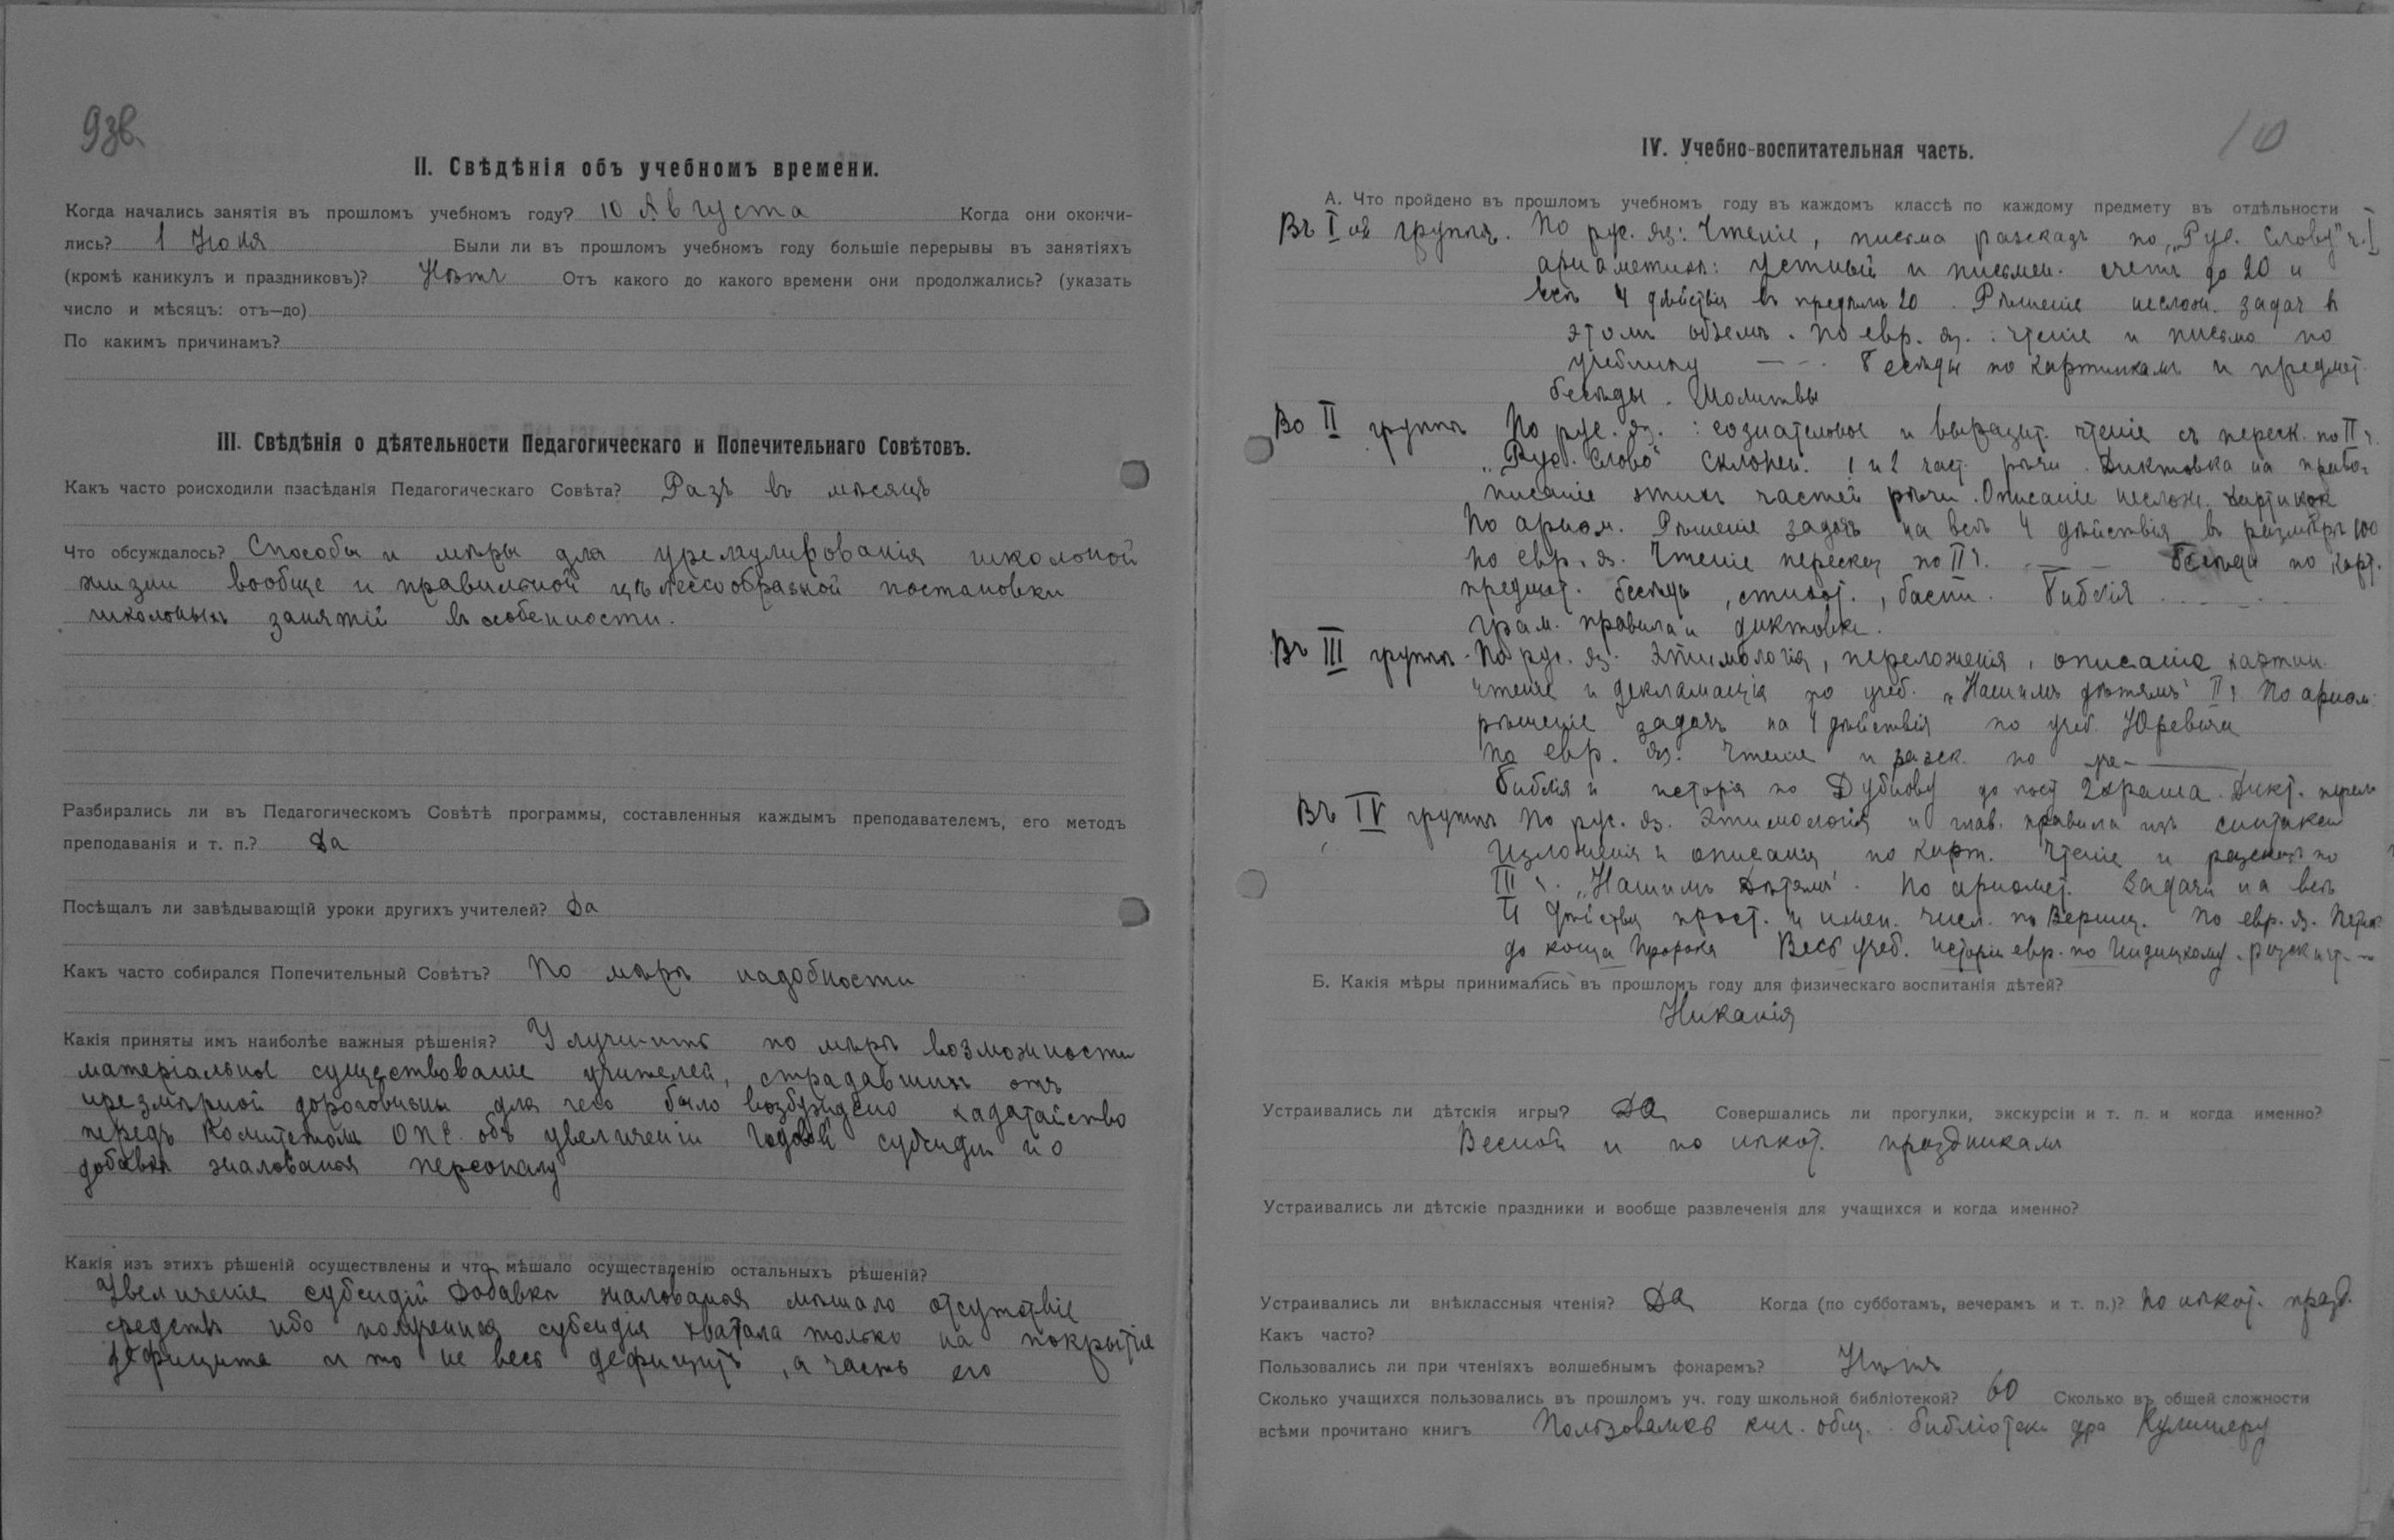 9зв.
II. Свѣдѣнія объ учебномъ времени.
Когда начались занятія въ прошломъ учебномъ году? 10 Августа Когда они окончи-
лись? 1 Іюня Были ли въ прошломъ учебномъ году большіе перерывы въ занятіяхъ
(кромѣ каникулъ и праздниковъ)? Нѣтъ Отъ какого до какого времени они продолжались? (указать
число и мѣсяцъ: отъ—до)
По какимъ причинамъ?
III. Свѣдѣнія о дѣятельности Педагогическаго и Попечительнаго Совѣтовъ.
Какъ часто роисходили пзасѣданія Педагогическаго Совѣта? Разъ въ мѣсяцъ
Что обсуждалось? Способы и мѣры для урегулированія школьной
жизни вообще и правильной цѣлесообразной постановки
школьныхъ занятій въ особенности.
Разбирались ли въ Педагогическомъ Совѣтѣ программы, составленныя каждымъ преподавателемъ, его методъ
преподаванія и т. п.? Да
Посѣщалъ ли завѣдывающій уроки другихъ учителей? Да
Какъ часто собирался Попечительный Совѣтъ? По мѣрѣ надобности
Какія приняты имъ наиболѣе важныя рѣшенія? Улучшить по мѣрѣ возможности
матеріальное существованіе учителей, страдавшихъ отъ
чрезмѣрной дороговизны для чего было возбуждено хадатайство
передъ Комитетомъ ОПЕ объ увеличеніи годовой субсидіи и о
добавкѣ жалованья персоналу
Какія изъ этихъ рѣшеній осуществлены и что мѣшало осуществленію остальныхъ рѣшеній?
Увеличеніе субсидій Добавкѣ жалованья мѣшало отсутствіе
средствъ ибо полученная субсидія хватала только на покрытіе
дефицита и то не весь дефицитъ, а часть его
10
IV. Учебно-воспитательная часть.
А. Что пройдено въ прошломъ учебномъ году въ каждомъ классѣ по каждому предмету въ отдѣльности
Въ I ой группѣ. По рус. яз: Чтеніе, письма разсказъ по „Рус. Слову" ч. I
ариѳметикѣ: устный и письмен. счетъ до 20 и
всѣ 4 дѣйствія въ предѣлѣ 20. Рѣшеніе неслож. задач в
этомъ объемѣ. По евр. яз.: чтеніе и письмо по
учебнику Бесѣды по картинкамъ и предмет.
бесѣды. Молитвы
Во II группѣ По рус. яз.: сознательное и выразит. чтеніе съ переск. по II ч.
„Рус. Слово" Склонен. 1 и 2 част. рѣчи. Диктовка на право-
писаніе этихъ частей рѣчи. Описаніе неслож. картинок
По ариѳм. Рѣшеніе задачъ на всѣ 4 дѣйствія въ размѣрѣ 100
По евр. яз. Чтеніе переск по II ч. Бесѣды по карт.
предмет. бесѣды, стихот., басни. Библія
грам. правила и диктовки.
Въ III группѣ. По рус. яз. Этимологія, переложенія, описаніе картин.
чтеніе и декламація по учеб. „Нашимъ дѣтямъ" II ч По ариѳм.
рѣшеніе задачъ на 4 дѣйствія по учеб. Юревича
По евр. яз. Чтеніе и разск. по
Библія и исторія по Дубнову до 2 храма. Дикт.
Въ IV группѣ По рус. яз. Этимологія и глав. правила изъ синтакси
Изложенія и описанія по карт. Чтеніе и разсказъ по
III ч. „Нашимъ Дѣтямъ". По ариѳмет. Задачи на всѣ
4 дѣйствія прост. и имен. числ. по Верещ. По евр. я.
до конца Весь учеб. исторіи евр. по
Б. Какія мѣры принимались въ прошломъ году для физическаго воспитанія дѣтей?
Никакія
Устраивались ли дѣтскія игры? Да Совершались ли прогулки, экскурсіи и т. п. и когда именно?
Весной и по нѣкот. праздникамъ
Устраивались ли дѣтскіе праздники и вообще развлеченія для учащихся и когда именно?
Устраивались ли внѣклассныя чтенія? Да Когда (по субботамъ, вечерамъ и т. п.)? По нѣкот. празд.
Какъ часто?
Пользовались ли при чтеніяхъ волшебнымъ фонаремъ? Нѣтъ
Сколько учащихся пользовались въ прошломъ уч. году школьной библіотекой? 60 Сколько въ общей сложности
всѣми прочитано книгъ Пользовались книг. общ. библіотеки